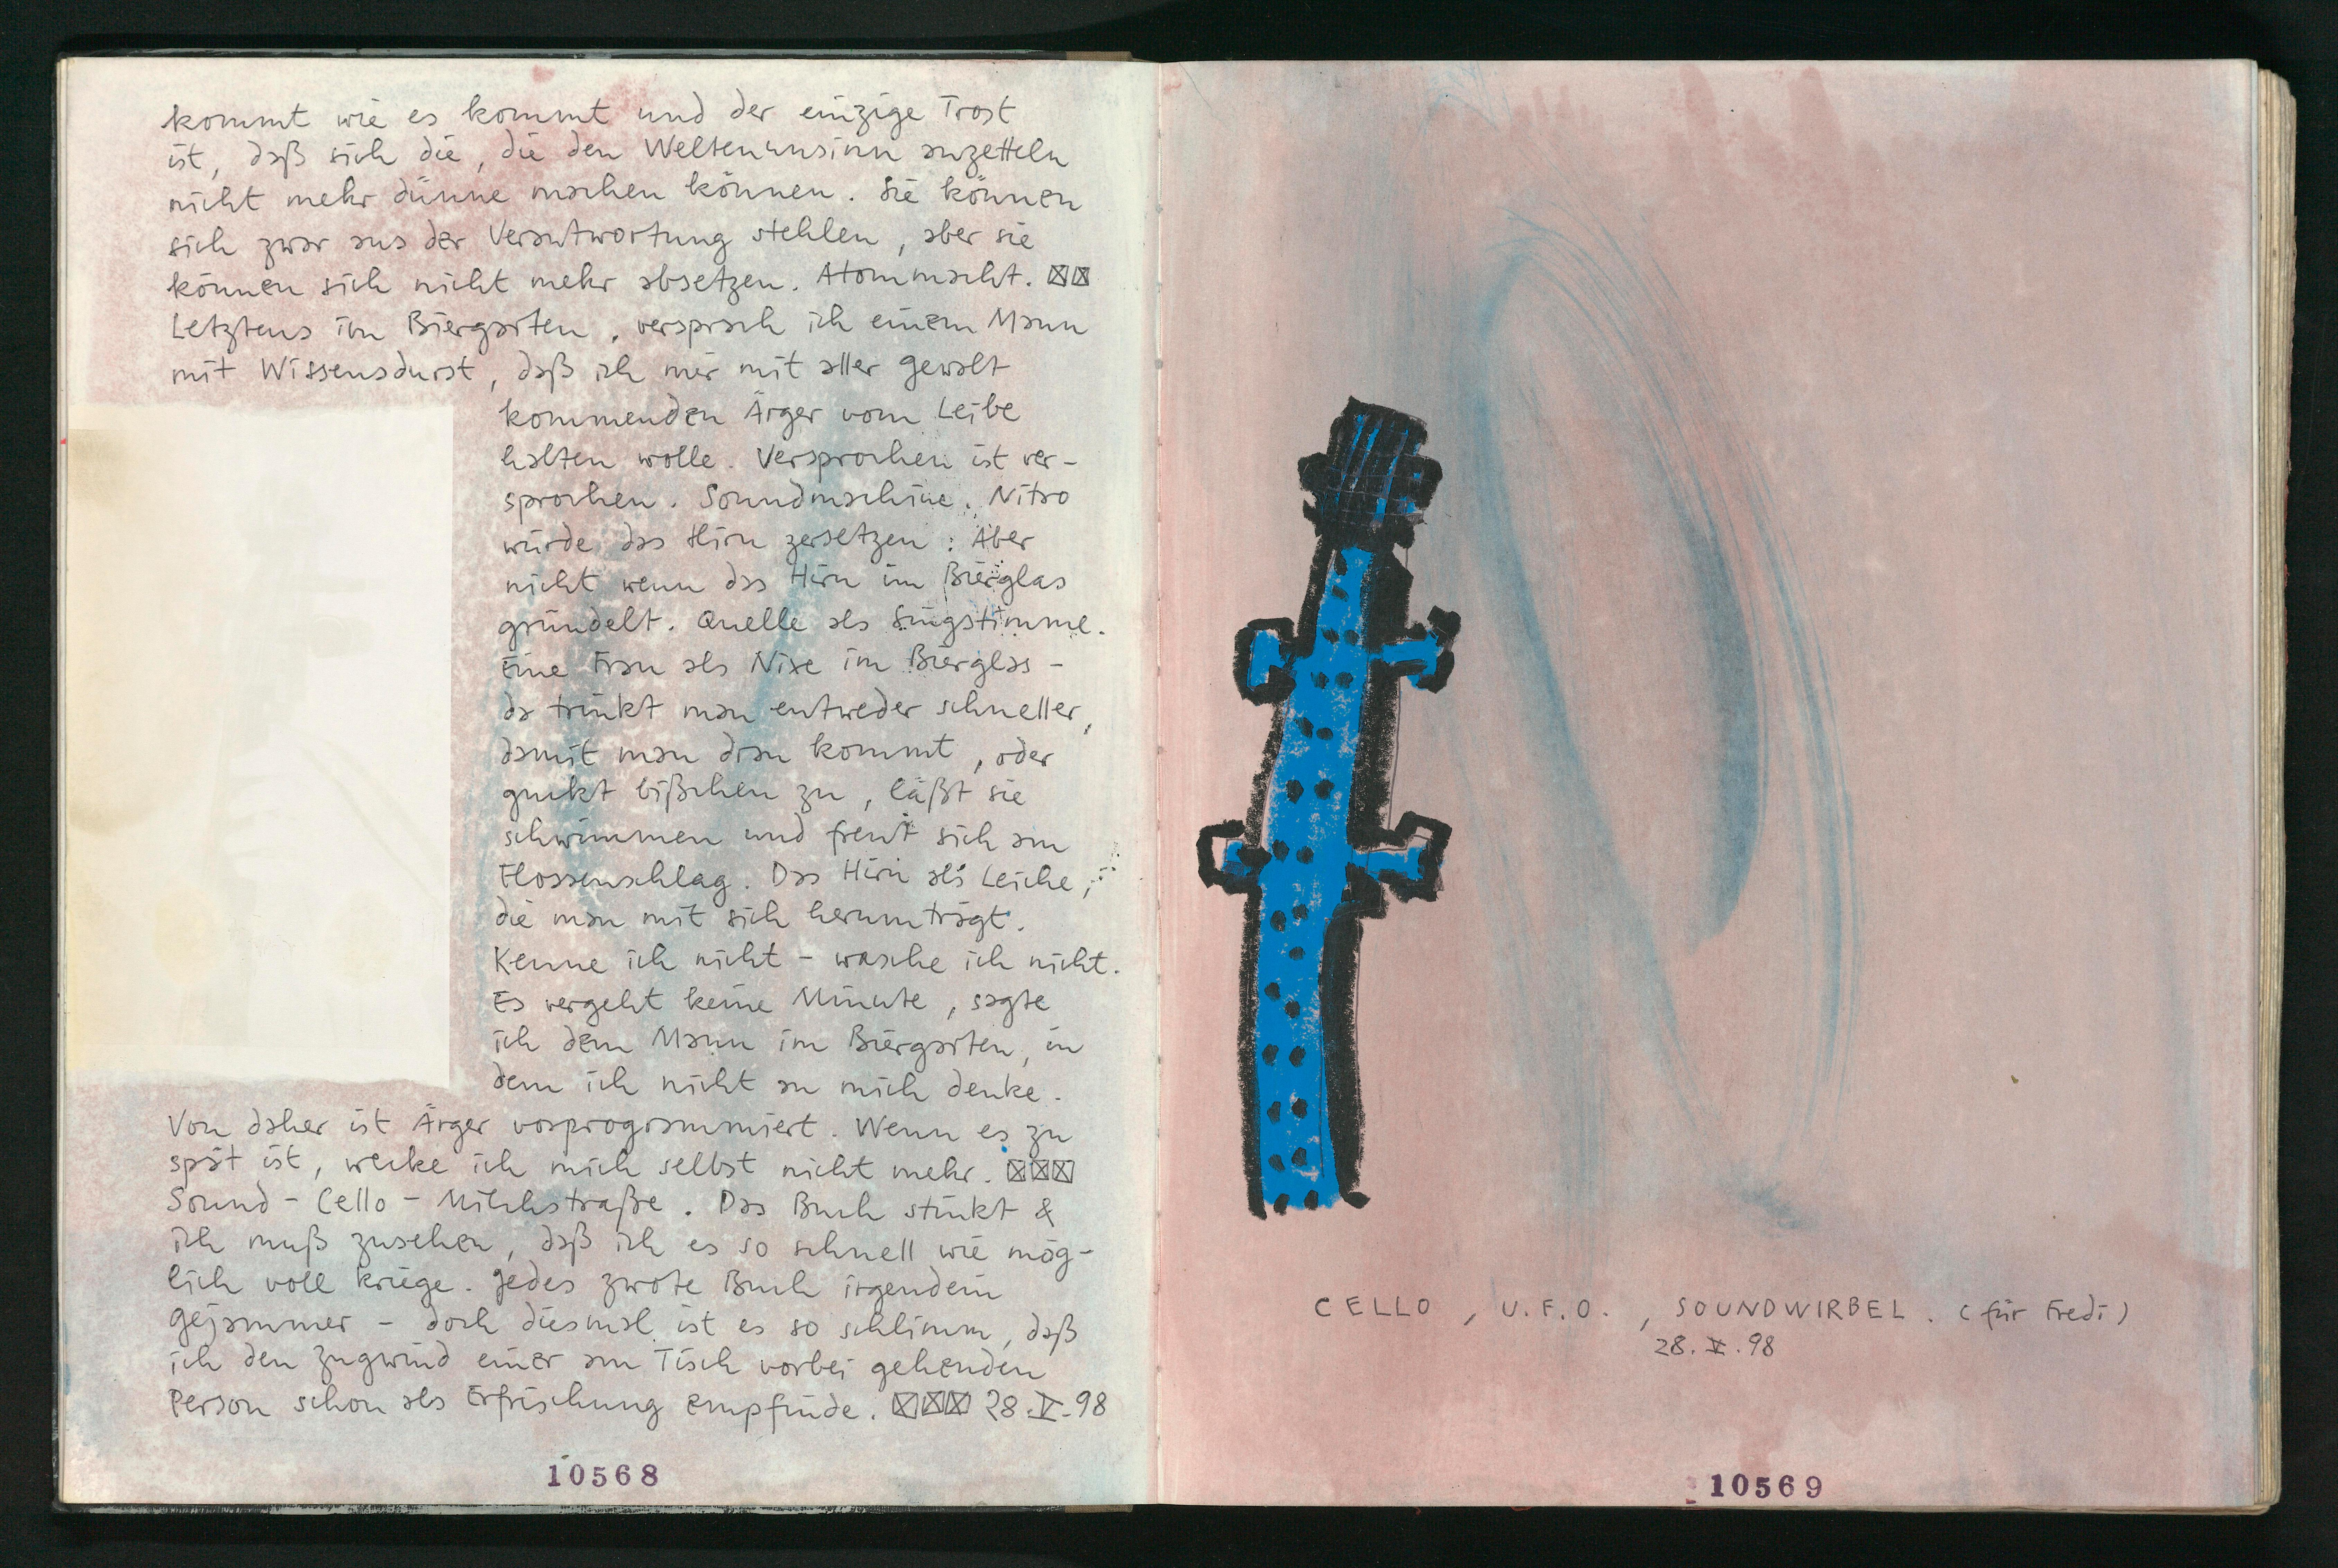 kommt wie es kommt und der einzige Trost
ist, daß sich die, die den Weltenunsinn anzetteln
nicht mehr dünne machen können. Sie können
sich zwar aus der Verantwortung stehlen, aber sie
können sich nicht mehr absetzen. Atommacht. ☒☒
Letztens im Biergarten, versprach ich einem Mann
mit Wissensdurst, daß ich mir mit aller Gewalt
kommenden Ärger vom Leibe
halten wolle. Versprochen ist ver-
sprochen. Soundmaschine. Nitro
würde das Hirn zersetzen: Aber
nicht wenn das Hirn im Bierglas
gründelt. Quelle als Singstimme.
Eine Frau als Nixe im Bierglas -
da trinkt man entweder schneller,
damit man dran kommt, oder
guckt bißchen zu, läßt sie
schwimmen und freut sich am
Flossenschlag. Das Hirn als Leiche,
die man mit sich herumträgt.
Kenne ich nicht - wasche ich nicht.
Es vergeht keine Minute, sagte
ich dem Mann im Biergarten, in
dem ich nicht an mich denke.
Von daher ist Ärger vorprogrammiert. Wenn es zu
spät ist, wecke ich mich selbst nicht mehr. ☒☒☒
Sound - Cello - Milchstraße. Das Buch stinkt &
ich muß zusehen, daß ich es so schnell wie mög-
lich voll kriege. Jedes zwote Buch irgendein
Gejammer - doch diesmal ist es so schlimm, daß
ich den Zugwind einer am Tisch vorbei gehenden
Person schon als Erfrischung empfinde. ☒☒☒ 28.V.98
10568
CELLO, U.F.O., SOUNDWIRBEL. (für Fredi)
28.V.98
10569